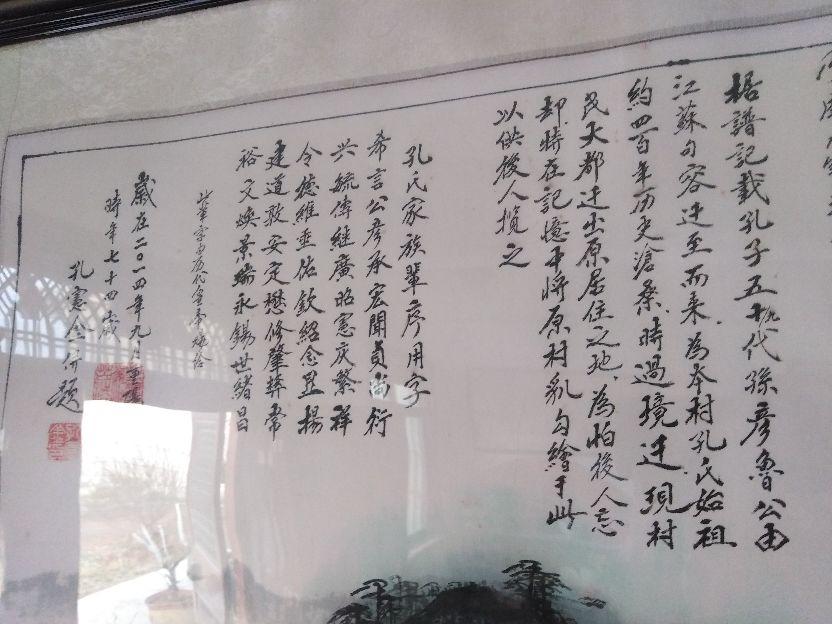 据譜記載孔子五十九代孫彦魯公由
江蘇句容迁至而来.為本村孔氏始祖
約四百年历史滄桑.時過境迁.現村
民大都迁出原居住之地.為怕後人忘
却.特在記憶中將原村貌勾繪于此
以供後人摂之
孔氏家族輩序用字
希言公彦承宏聞貞尚衍
兴毓傳継廣昭憲庆繁祥
令德維垂佑欽紹念顕揚
建道敦安定懋修肇彝常
裕文煥景瑞永錫世緒昌
此輩字由历代皇帝
歲在二〇一四年九月重陽
時年七十四歲
孔憲金并題